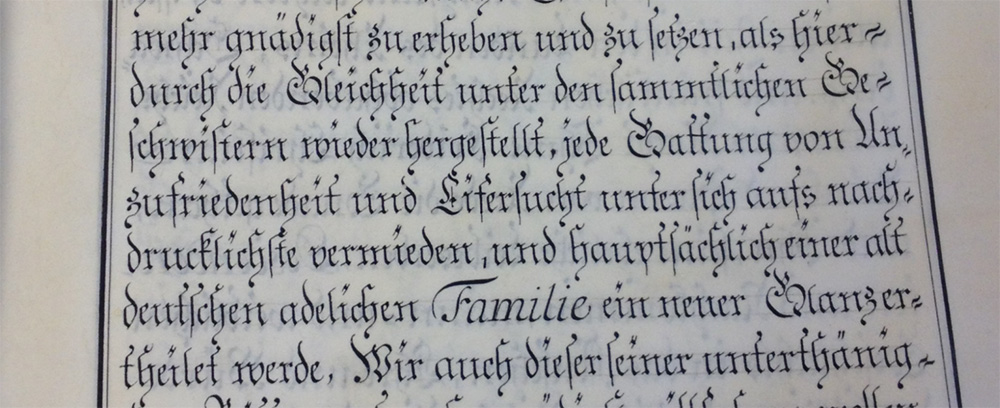 mehr gnädigst zu erheben und zu setzen, als hier=
durch die Gleichheit unter den sammtlichen Ge=
schwistern wieder hergestellt, jede Gattung von Un,,
zufriedenheit und Eifersucht unter sich aufs nach=
drucklichste vermieden, und hauptsächlich einer alt
deutschen adelichen Familie ein neuer Glanz er=
theilet werde, Wir auch dieser seiner unterthänig=